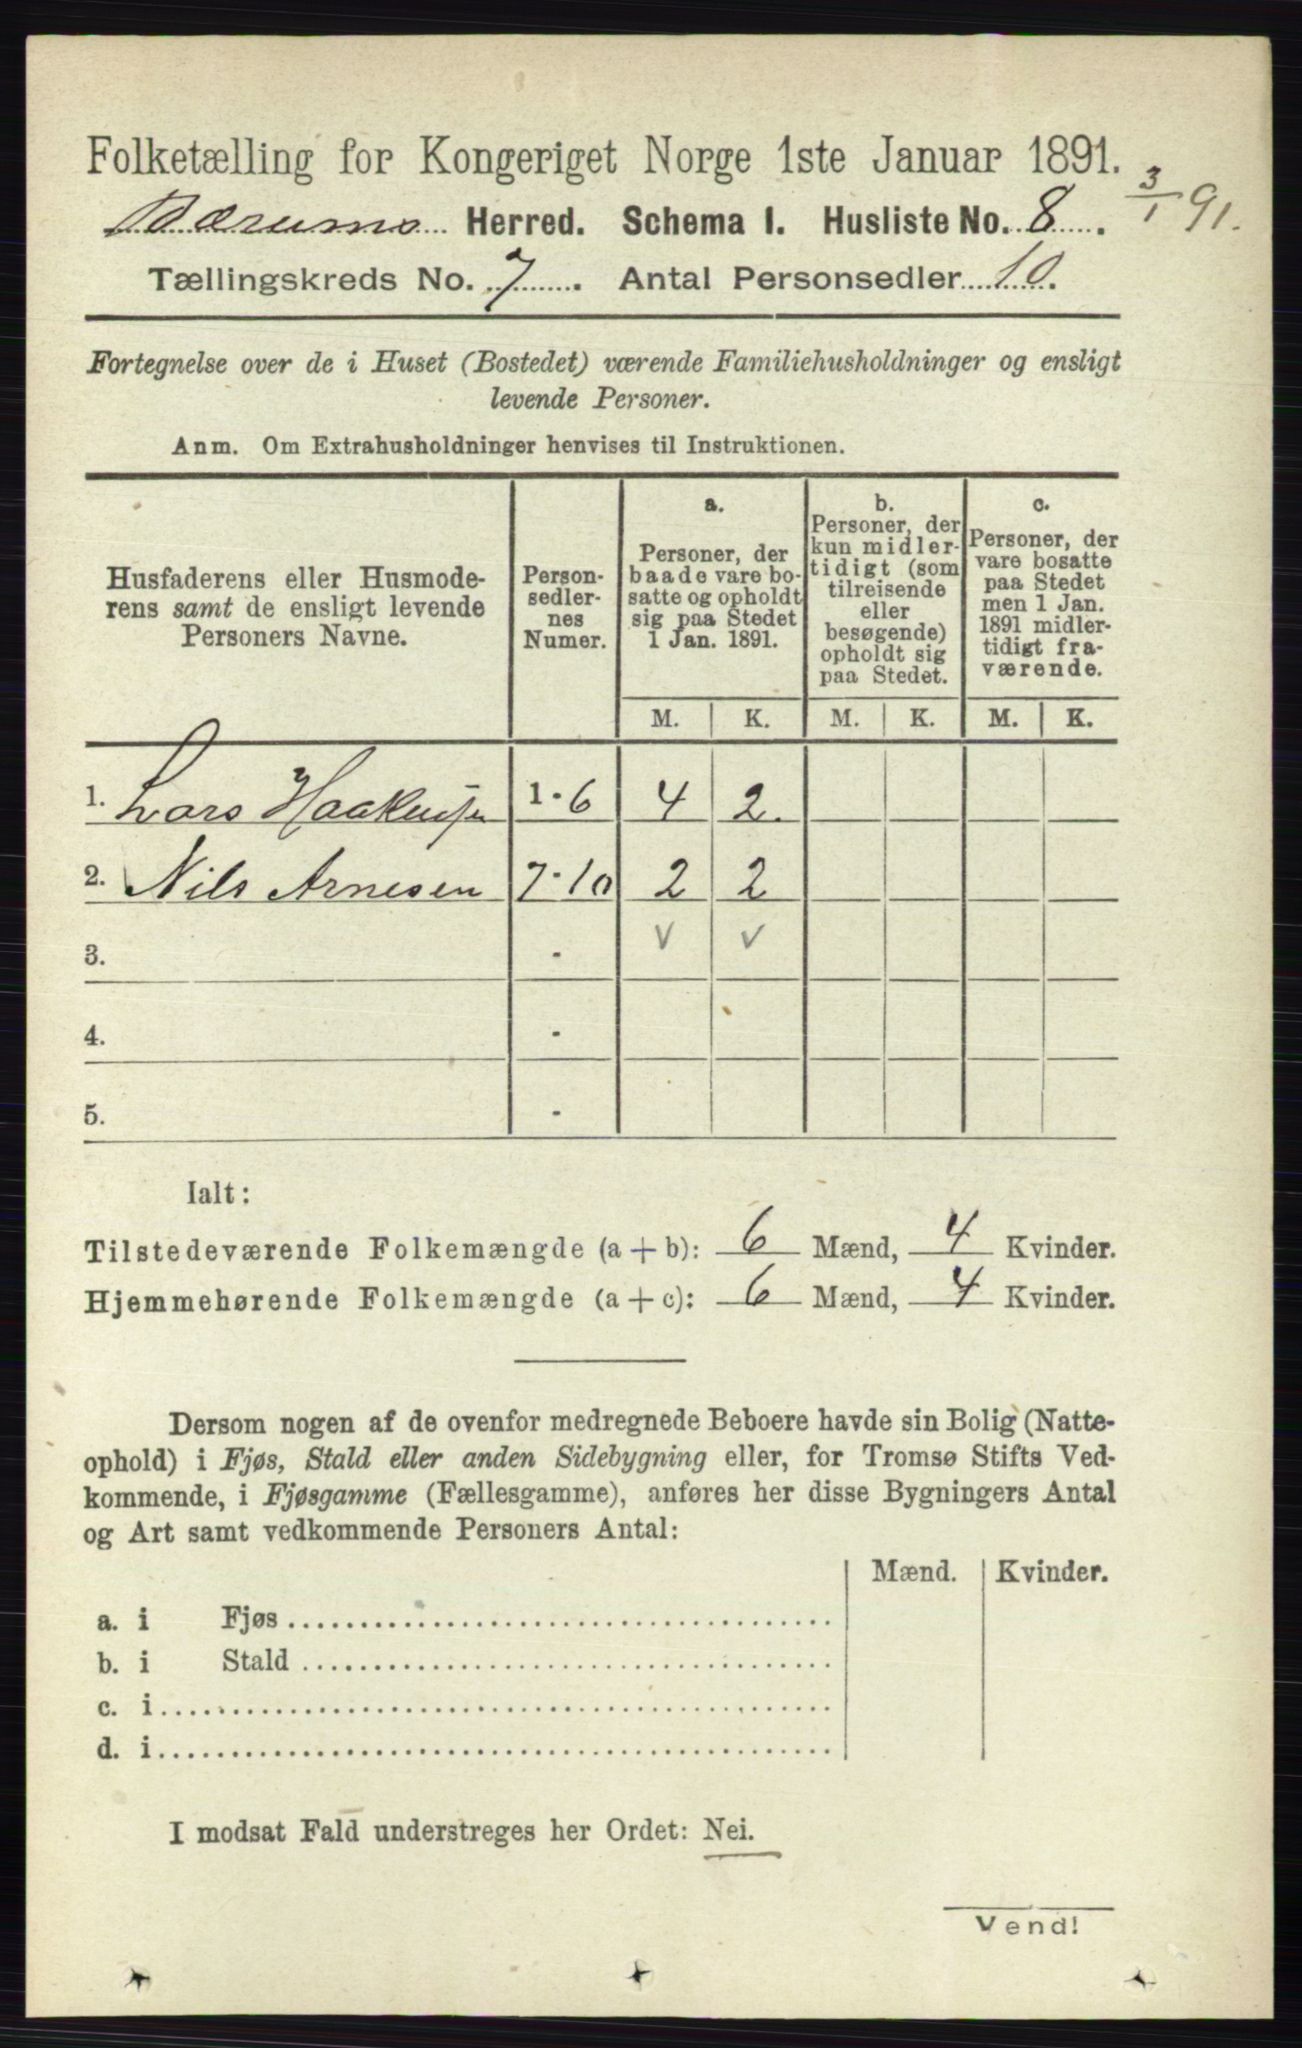 Folketælling for Kongeriget Norge 1ste Januar 1891.
3/1 91.
Bærums Herred. Schema I. Husliste No. 8.
Tællingskreds No. 7. Antal Personsedler 10.
Fortegnelse over de i Huset (Bostedet) værende Familiehusholdninger og ensligt
levende Personer.
Anm. Om Extrahusholdninger henvises til Instruktionen.
Husfaderens eller Husmode-
rens samt de ensligt levende
Personers Navne.
Person-
sedler-
nes
Numer.
a.
Personer, der
baade vare bo-
satte og opholdt
sig paa Stedet
1 Jan. 1891.
b.
Personer, der
kun midler-
tidigt (som
tilreisende
eller
besøgende)
opholdt sig
paa Stedet.
c.
Personer, der
vare bosatte
paa Stedet
men 1 Jan.
1891 midler-
tidigt fra-
værende.
M. K. M. K. M. K.
1. Lars 1 - 6 4 2.
2. Nils Arnesen 7 - 10 2 2
3. - v v
4. -
5. -
Ialt:
Tilstedeværende Folkemængde (a + b): 6 Mænd, 4 Kvinder.
Hjemmehørende Folkemængde (a + c): 6 Mænd, 4 Kvinder.
Dersom nogen af de ovenfor medregnede Beboere havde sin Bolig (Natte-
ophold) i Fjøs, Stald eller anden Sidebygning eller, for Tromsø Stifts Ved-
kommende, i Fjøsgamme (Fællesgamme), anføres her disse Bygningers Antal
og Art samt vedkommende Personers Antal:
Mænd. Kvinder.
a. i Fjøs
b. i Stald
c. i
d. i
I modsat Fald understreges her Ordet: Nei.
Vend!